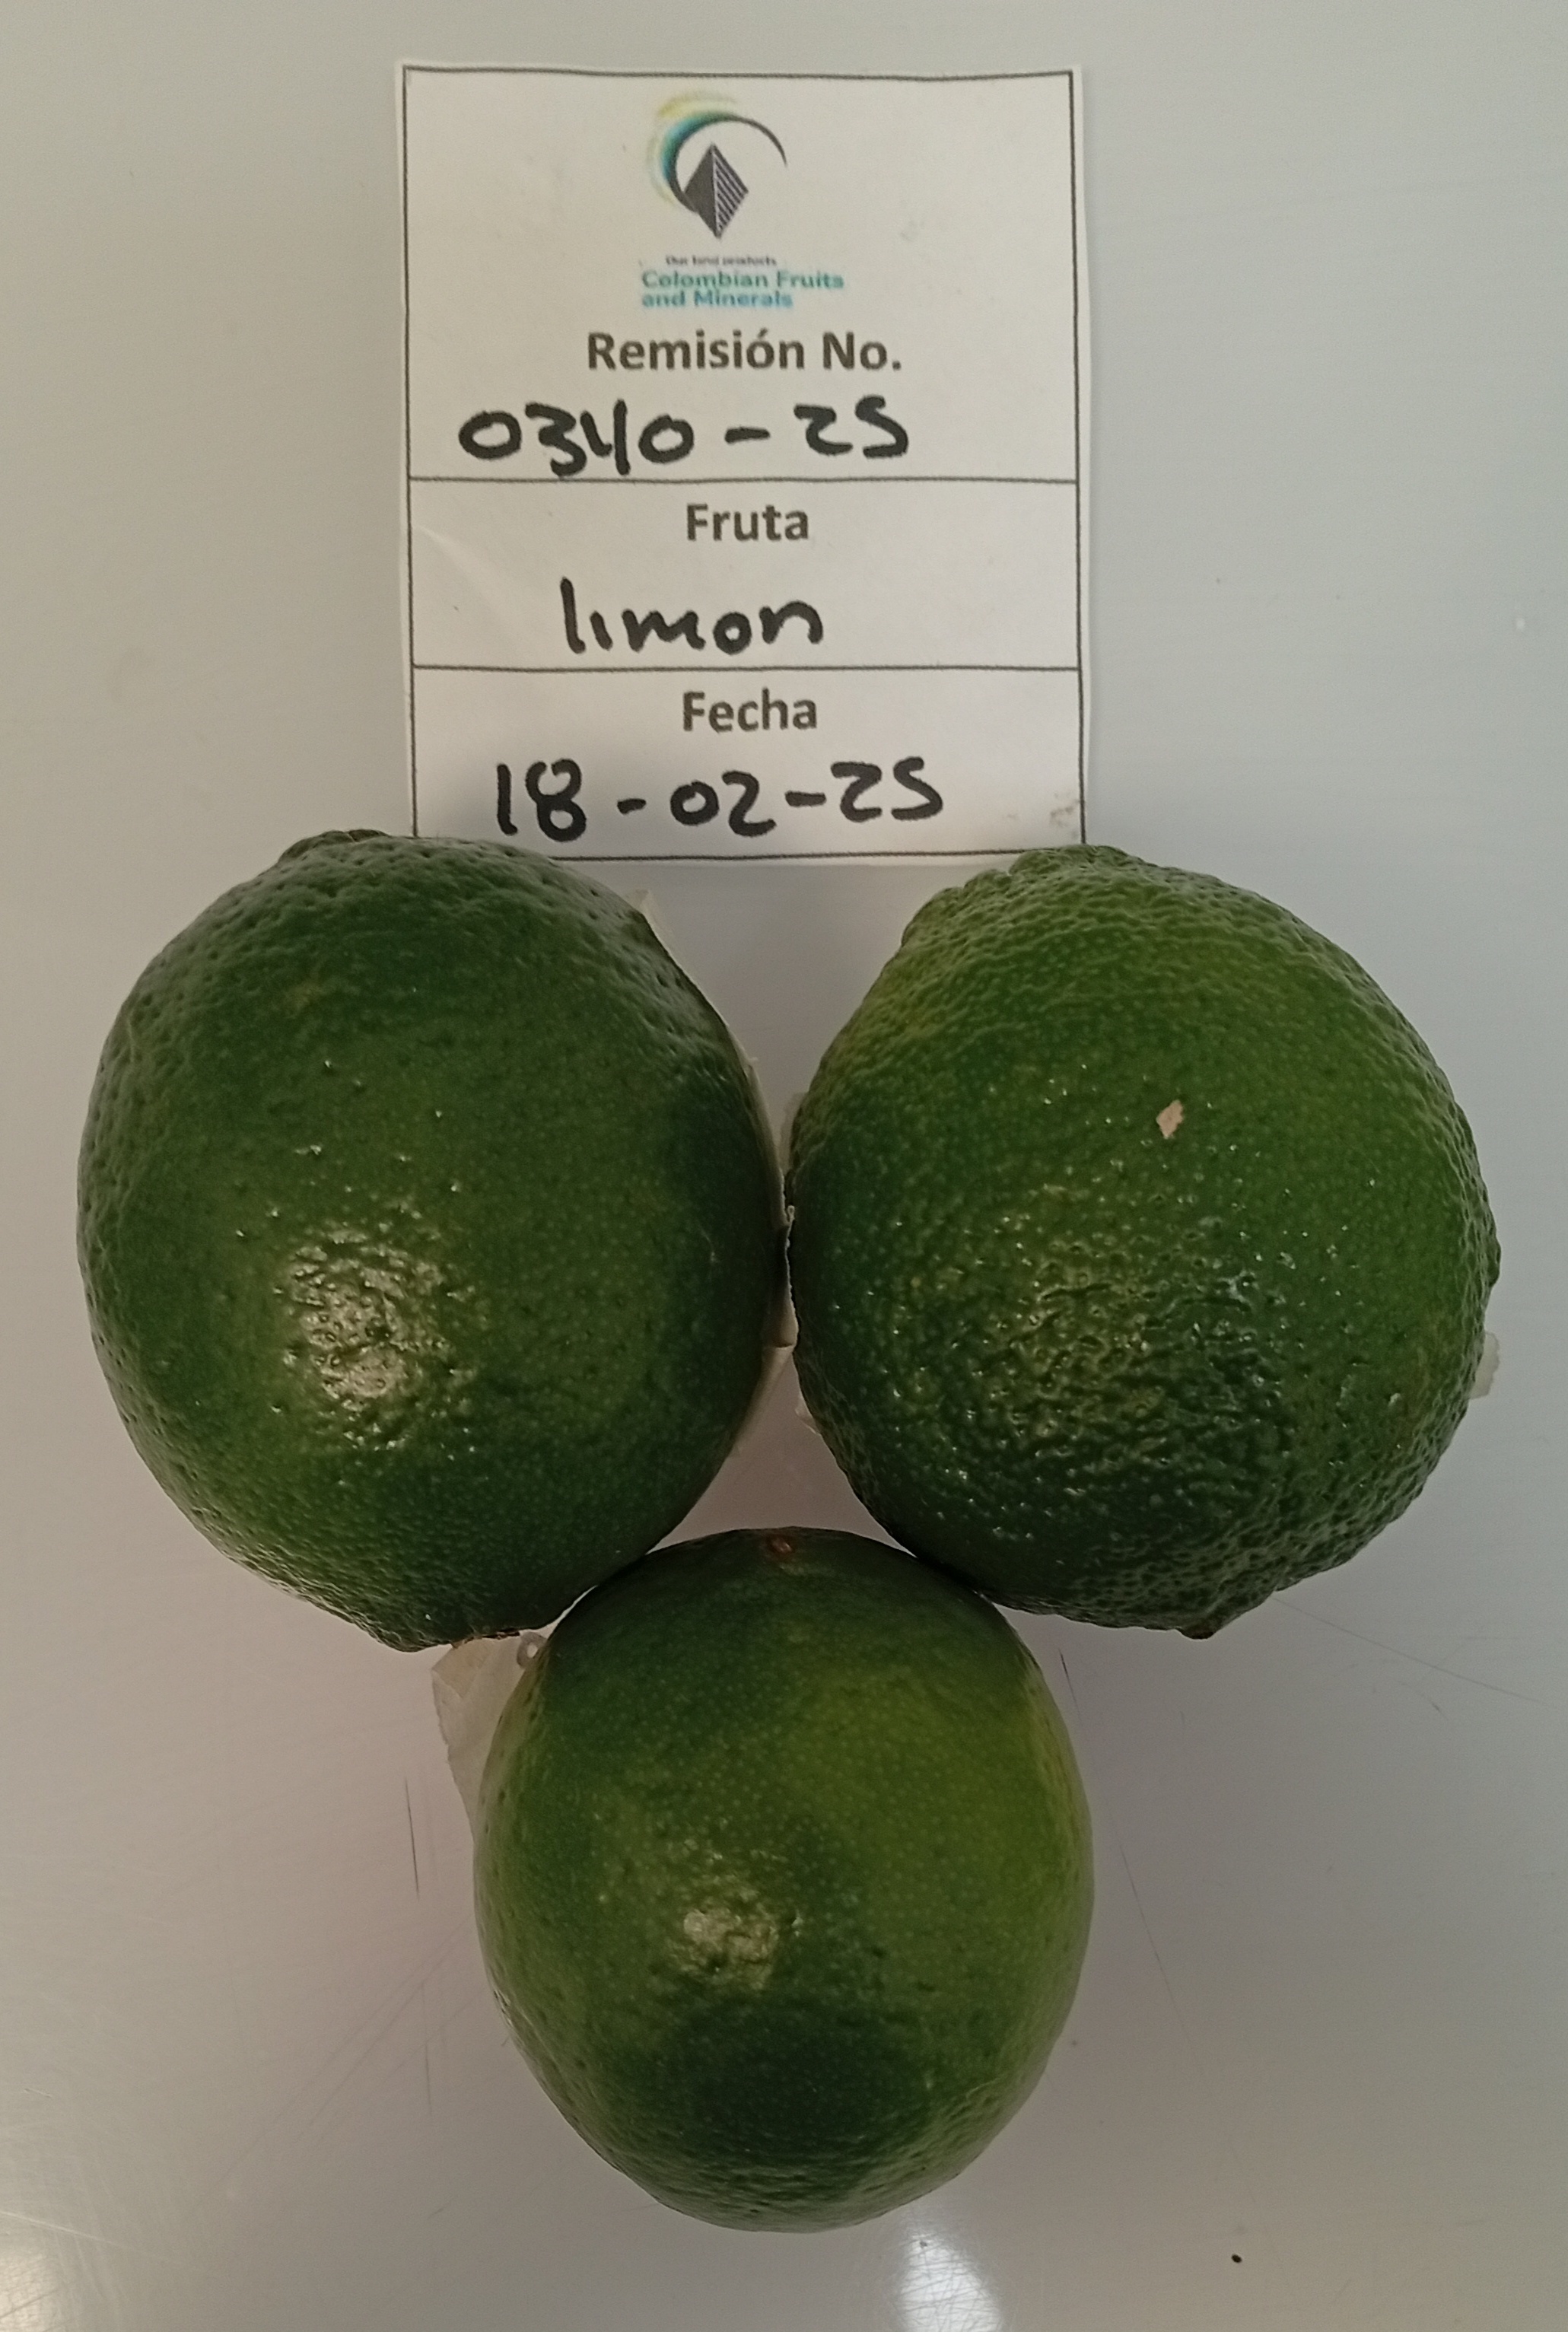 Our land products
Colombian Fruits
and Minerals
Remisión No.
0340-25
Fruta
limon
Fecha
18-02-25